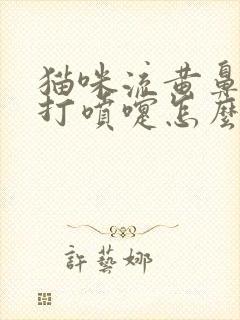 猫咪流黄鼻
打噴嚏怎麼
許藝娜